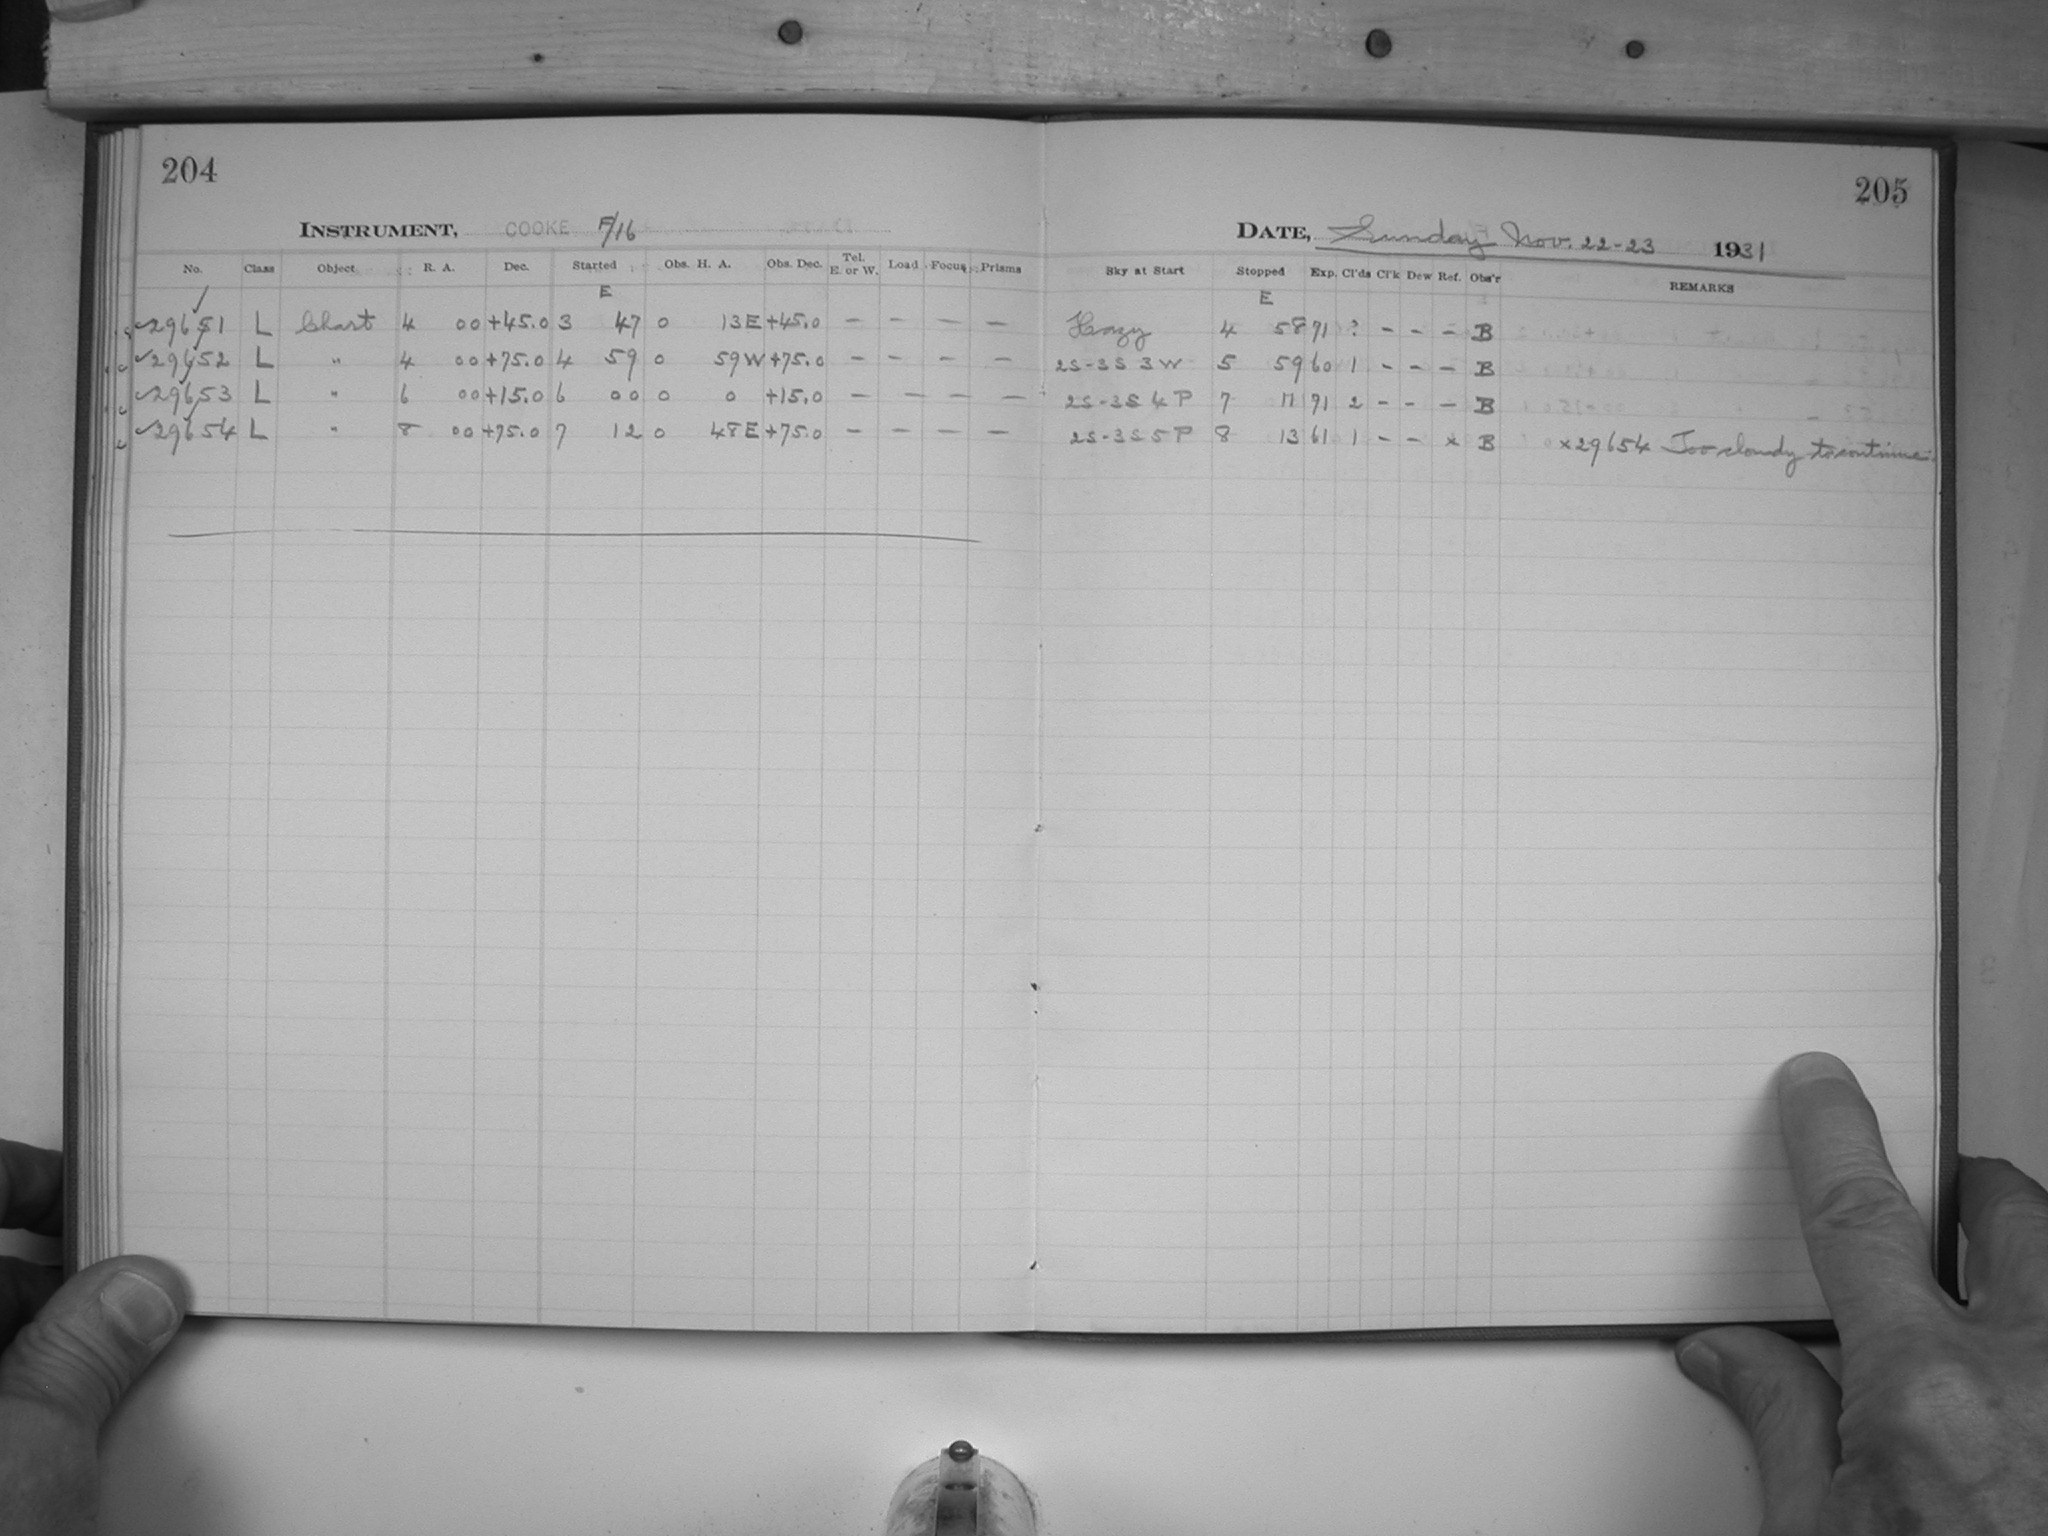 204
INSTRUMENT, COOKE F/16
No. Class Object R. A. Dec. Started Obs. H. A. Obs. Dec. Tel. E. or W. Load Focus Prisms
E
29651 L Chart 4 00 +45.0 3 47 0 13E +45.0 — — — —
29652 L " 4 00 +75.0 4 59 0 59W +75.0 — — — —
29653 L " 6 00 +15.0 6 00 0 0 +15.0 — — — —
29654 L " 8 00 +75.0 7 12 0 48E +75.0 — — — —
205
DATE, Sunday Nov. 22-23 1931
Sky at Start Stopped Exp. Cl'ds Cl'k Dew Ref. Obs'r REMARKS
E
Hazy 4 58 71 ? - - - B
2S-3S 3W 5 59 60 1 - - - B
2S-3S 4P 7 11 71 2 - - - B
2S-3S 5P 8 13 61 1 - - x B x29654 Too cloudy to continue.